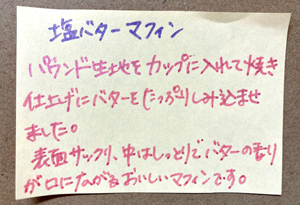 塩バターマフィン
パウンド生地をカップに入れて焼き
仕上げにバターをたっぷりしみ込ませ
ました。
表面サックリ、中はしっとりでバターの香り
が口に広がるおいしいマフィンです。